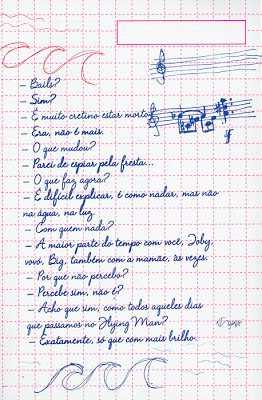 – Bails?
– Sim?
– É muito cretino estar morto?
– Era, não é mais.
– O que mudou?
– Parei de espiar pela fresta...
– O que faz agora?
– É difícil explicar, é como nadar, mas não
na água, na luz.
– Com quem nada?
– A maior parte do tempo com você, Toby,
vovó, Big, também com a mamãe, às vezes.
– Por que não percebo?
– Percebe sim, não é?
– Acho que sim, como todos aqueles dias
que passamos no Flying Man?
– Exatamente, só que com mais brilho.